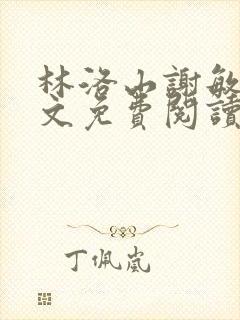 林洛山謝敏
文免費閱讀
丁佩嵐